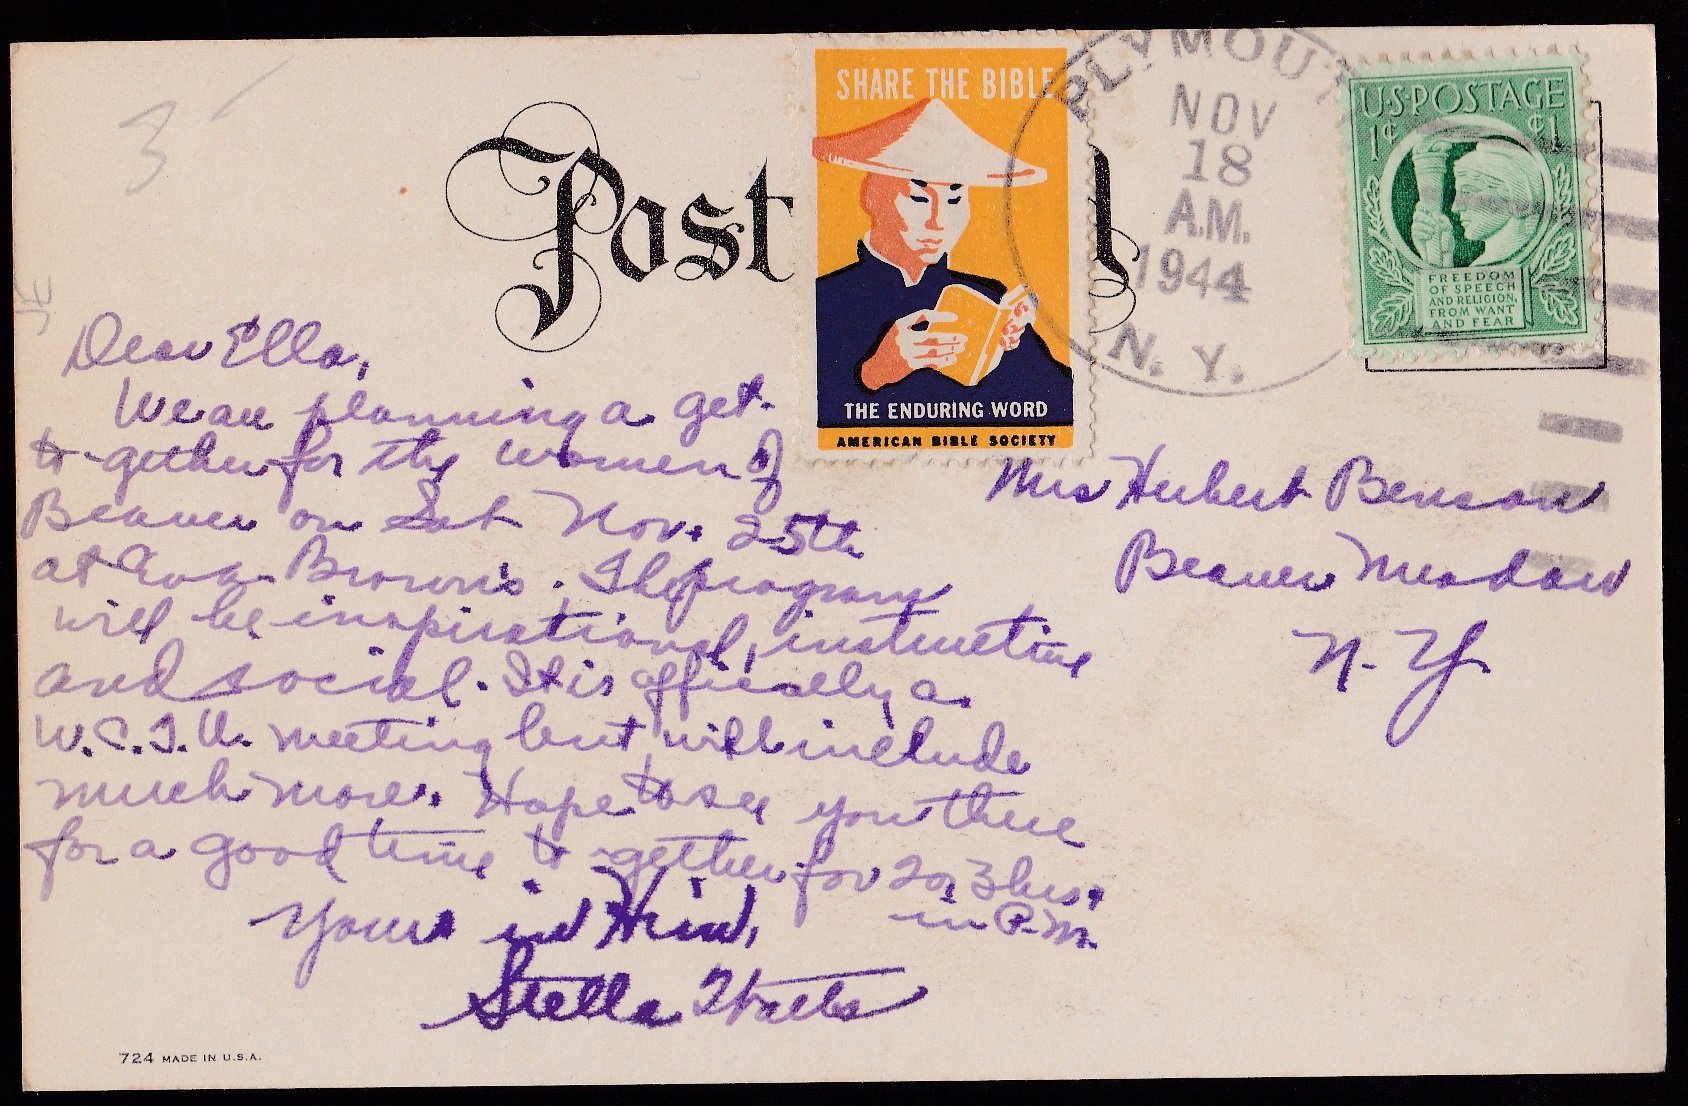 3
JE
Post
SHARE THE BIBLE
THE ENDURING WORD
AMERICAN BIBLE SOCIETY
PLYMOUT
NOV
18
A.M.
1944
N. Y.
U.S. POSTAGE
1¢ ¢1
FREEDOM
OF SPEECH
AND RELIGION,
FROM WANT
AND FEAR
Dear Ella,
We are planning a get-
to-gether for the women of
Beaver on Sat Nov. 25th
at Eva Brown's. The program
will be inspirational, instructive
and social. It is officially a
W.C.T.U. meeting but will include
much more. Hope to see you there
for a good time to-gether for 2 or 3 hrs.
in P.M.
Yours in Him,
Stella
Mrs Herbert Benson
Beaver Meadow
N. Y.
724 MADE IN U.S.A.